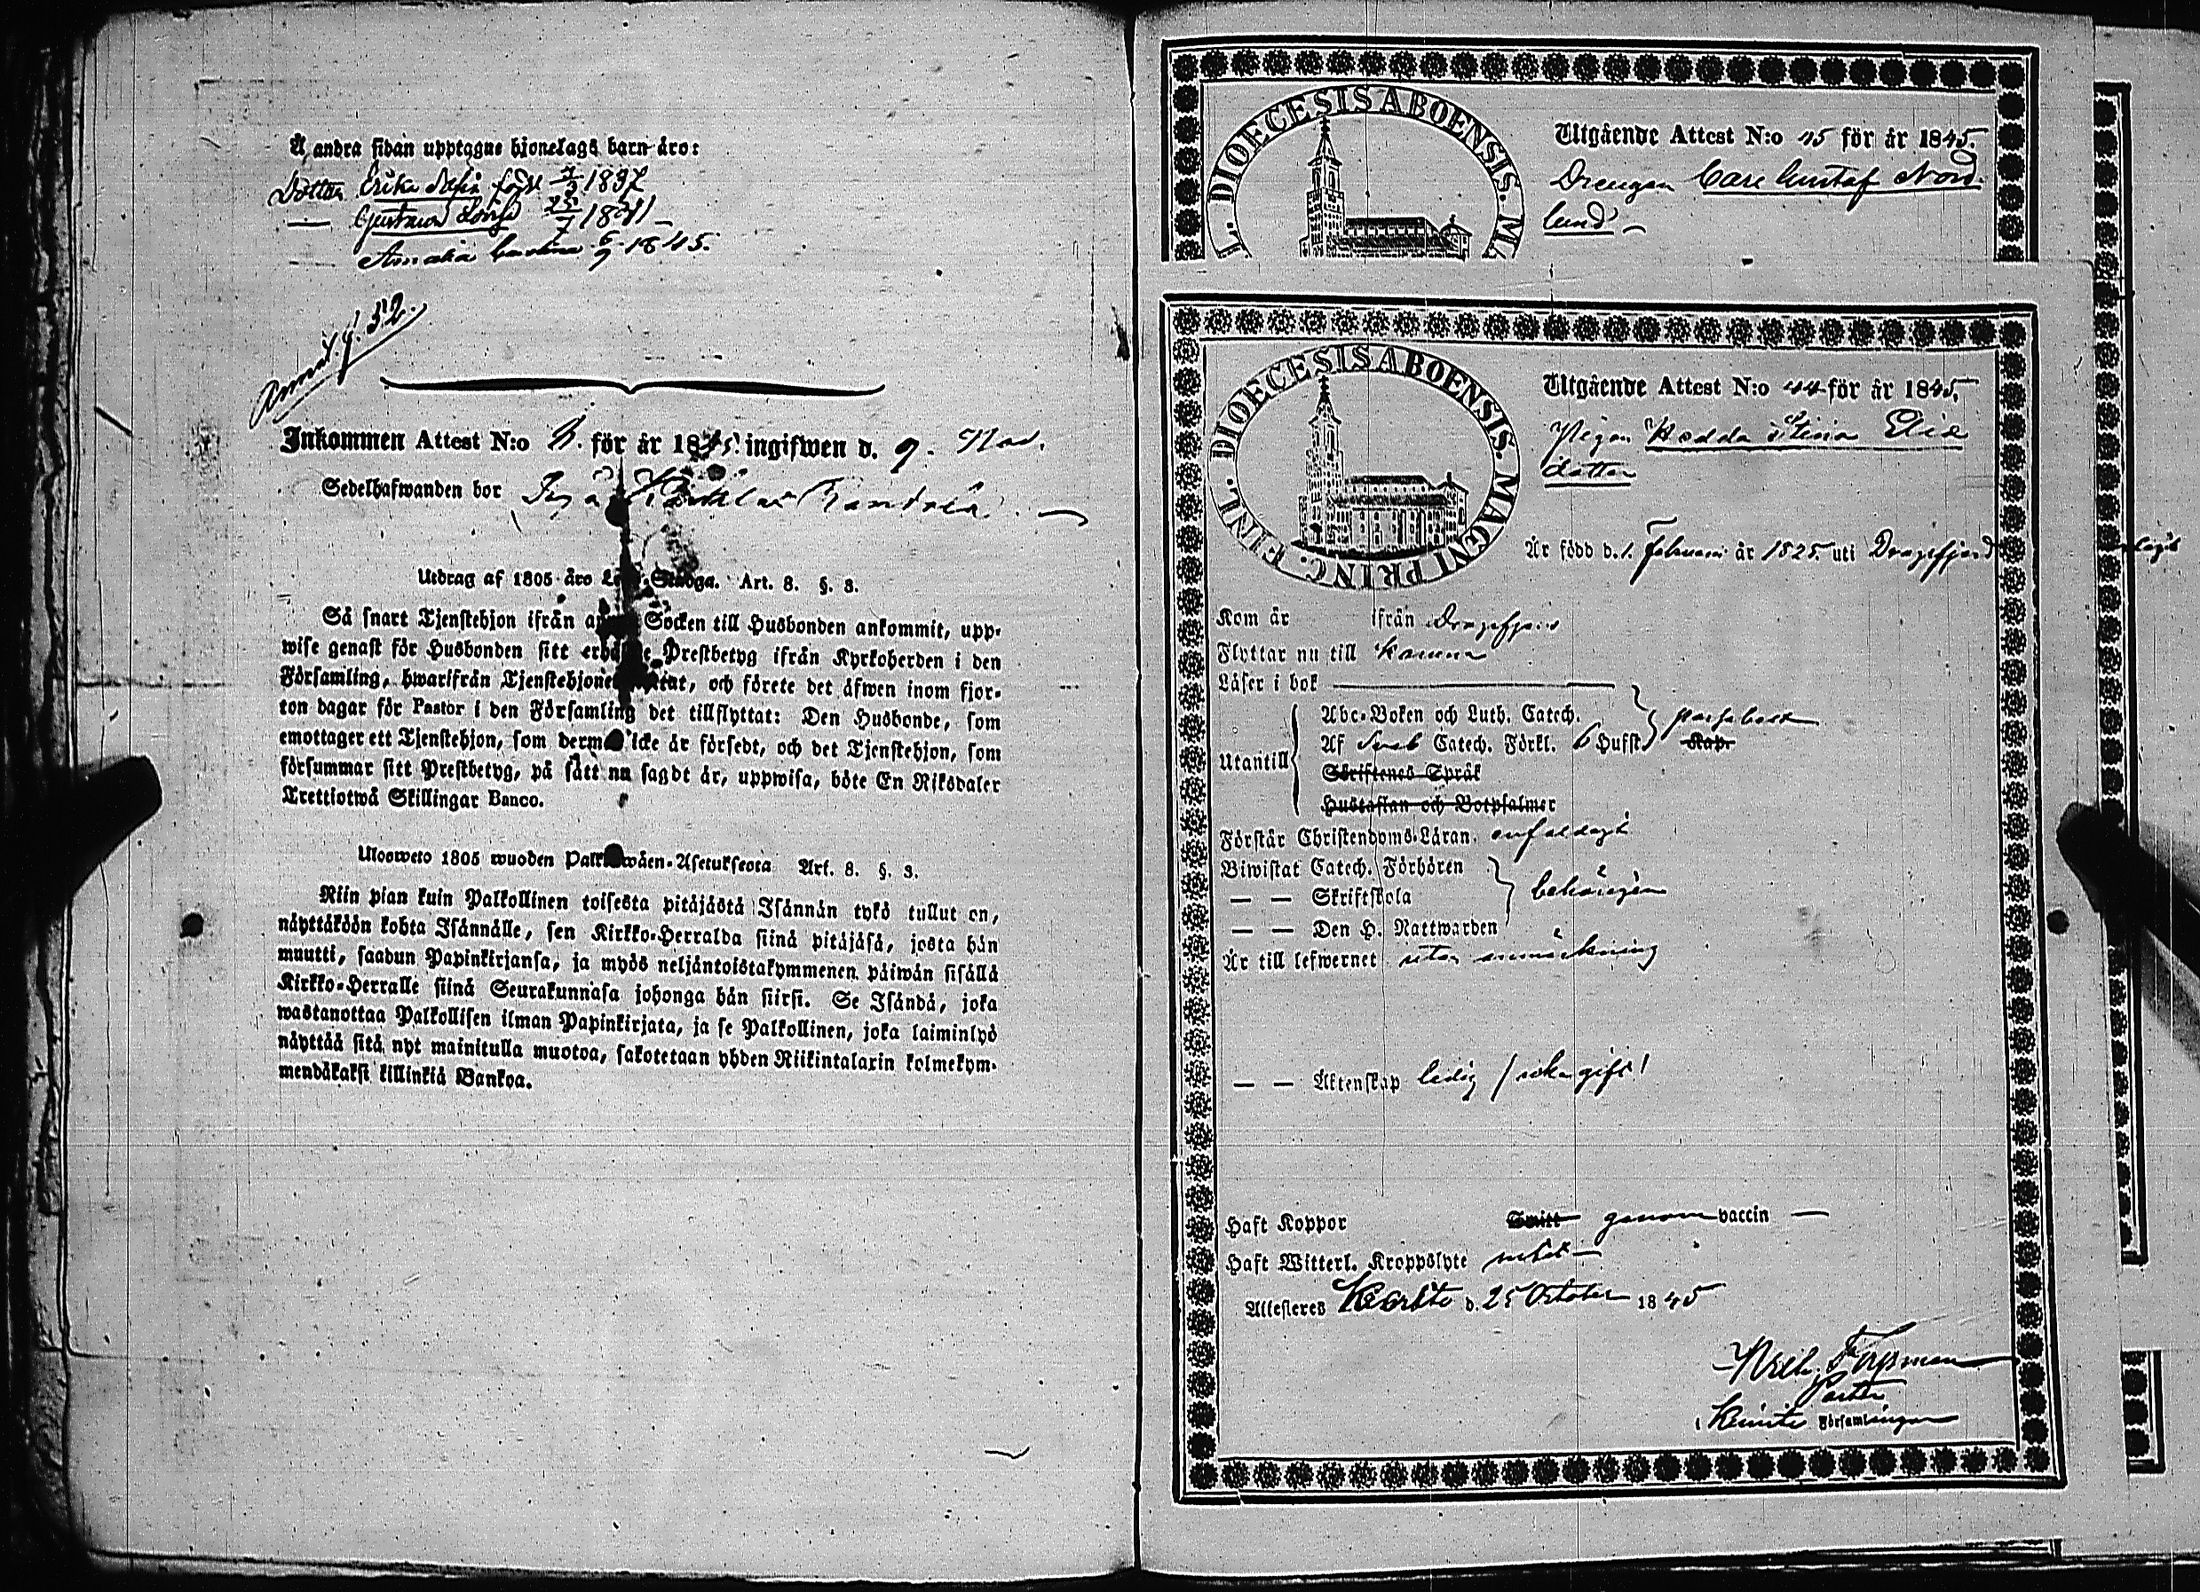 Å andra sidan upptagne hjonelags barn äro:
Dotter Erika Sofia född 7/3 1837
— Gustava Lovisa 25/7 1841
Amalia Carolina 6/9 1845.
52.
Inkommen Attest N:o för år 1845 ingifwen d. 9. Nov.
Sedelhafwanden bor
Utdrag af 1805 åro Lego-Stadga. Art. 8. §. 3.
Så snart Tjenstehjon ifrån annan Socken till Husbonden ankommit, upp-
wise genast för Husbonden sitt erhållne Prestbetyg ifrån Kyrkoherden i den
Församling, hwarifrån Tjenstehjonet flyttat, och förete det äfwen inom fjor-
ton dagar för Pastor i den Församling det tillflyttat: Den Husbonde, som
emottager ett Tjenstehjon, som dermed icke är försedt, och det Tjenstehjon, som
försummar sitt Prestbetyg, på sätt nu sagdt är, uppwisa, böte En Riksdaler
Trettiotwå Skillingar Banco.
Ulosweto 1805 wuoden Palkkawäen-Asetuksesta Art. 8. §. 3.
Niin pian kuin Palkollinen toisesta pitäjästä Isännän tykö tullut on,
näyttäköön kohta Isännälle, sen Kirkko-Herralda siinä pitäjäsä, josta hän
muutti, saadun Papinkirjansa, ja myös neljäntoistakymmenen päiwän sisällä
Kirkko-Herralle siinä Seurakunnasa johonga hän siirsi. Se Isändä, joka
wastanottaa Palkollisen ilman Papinkirjata, ja se Palkollinen, joka laiminlyö
näyttää sitä nyt mainitulla muotoa, sakotetaan yhden Riikintalarin kolmekym-
mendäkaksi killinkiä Bankoa.
L. DIOECESIS ABOENSIS. MA
Utgående Attest N:o 45 för år 1845.
Drengen Carl Gustaf Nord-
lund
DIOECESIS ABOENSIS. MAGNI PRINC. FINL.
Utgående Attest N:o 44 för år 1845.
Pigan Hedda Stina Elis
dotter
Är född d. 1. Februari år 1825. uti Dragsfjerd
Kom år ifrån Dragsfjerd
Flyttar nu till Karuna
Läser i bok
Utantill
Abc-Boken och Luth. Catech.
Af Sveb Catech. Förkl. 6 Hufst. Kapr
Skriftenes Språk
Hustaflan och Botpsalmer
Förstår Christendoms-Läran. enfaldigt
Biwistat Catech. Förhören
— — Skriftskola behörigen
— — Den H. Nattwarden
Är till lefwernet utan anmärkning
— — Äktenskap ledig
Haft Koppor Smitt genom vaccin —
Haft Witterl. Kroppslyte intet —
Attesteras Kimito d. 25 October 1845
Pastor
i Kimito Församlingen